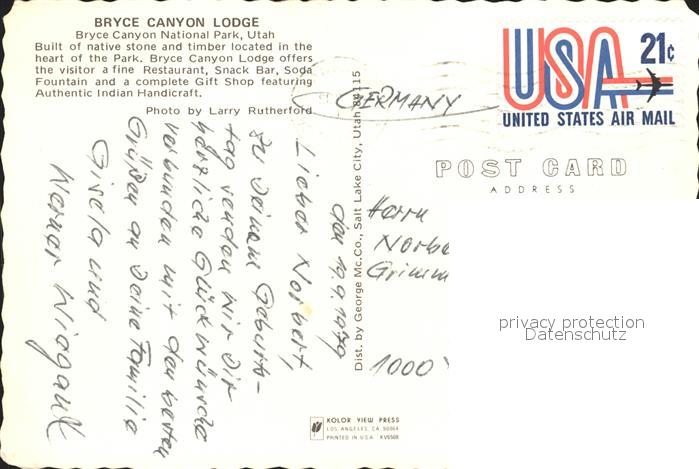 BRYCE CANYON LODGE
Bryce Canyon National Park, Utah
Built of native stone and timber located in the
heart of the Park. Bryce Canyon Lodge offers
the visitor a fine Restaurant, Snack Bar, Soda
Fountain and a complete Gift Shop featuring
Authentic Indian Handicraft.
Photo by Larry Rutherford
den 19.9.1979
Lieber Norbert,
zu Deinem Geburts-
tag senden wir Dir
herzliche Glückwünsche
verbunden mit den besten
Grüßen an Deine Familie
Gisela und
Werner
Dist. by George Mc.Co., Salt Lake City, Utah 84115
GERMANY
USA 21c
UNITED STATES AIR MAIL
POST CARD
ADDRESS
Herrn
Norbe
Grimm
1000
privacy protection
Datenschutz
KOLOR VIEW PRESS
LOS ANGELES, CA. 90064
PRINTED IN U.S.A. KV5508